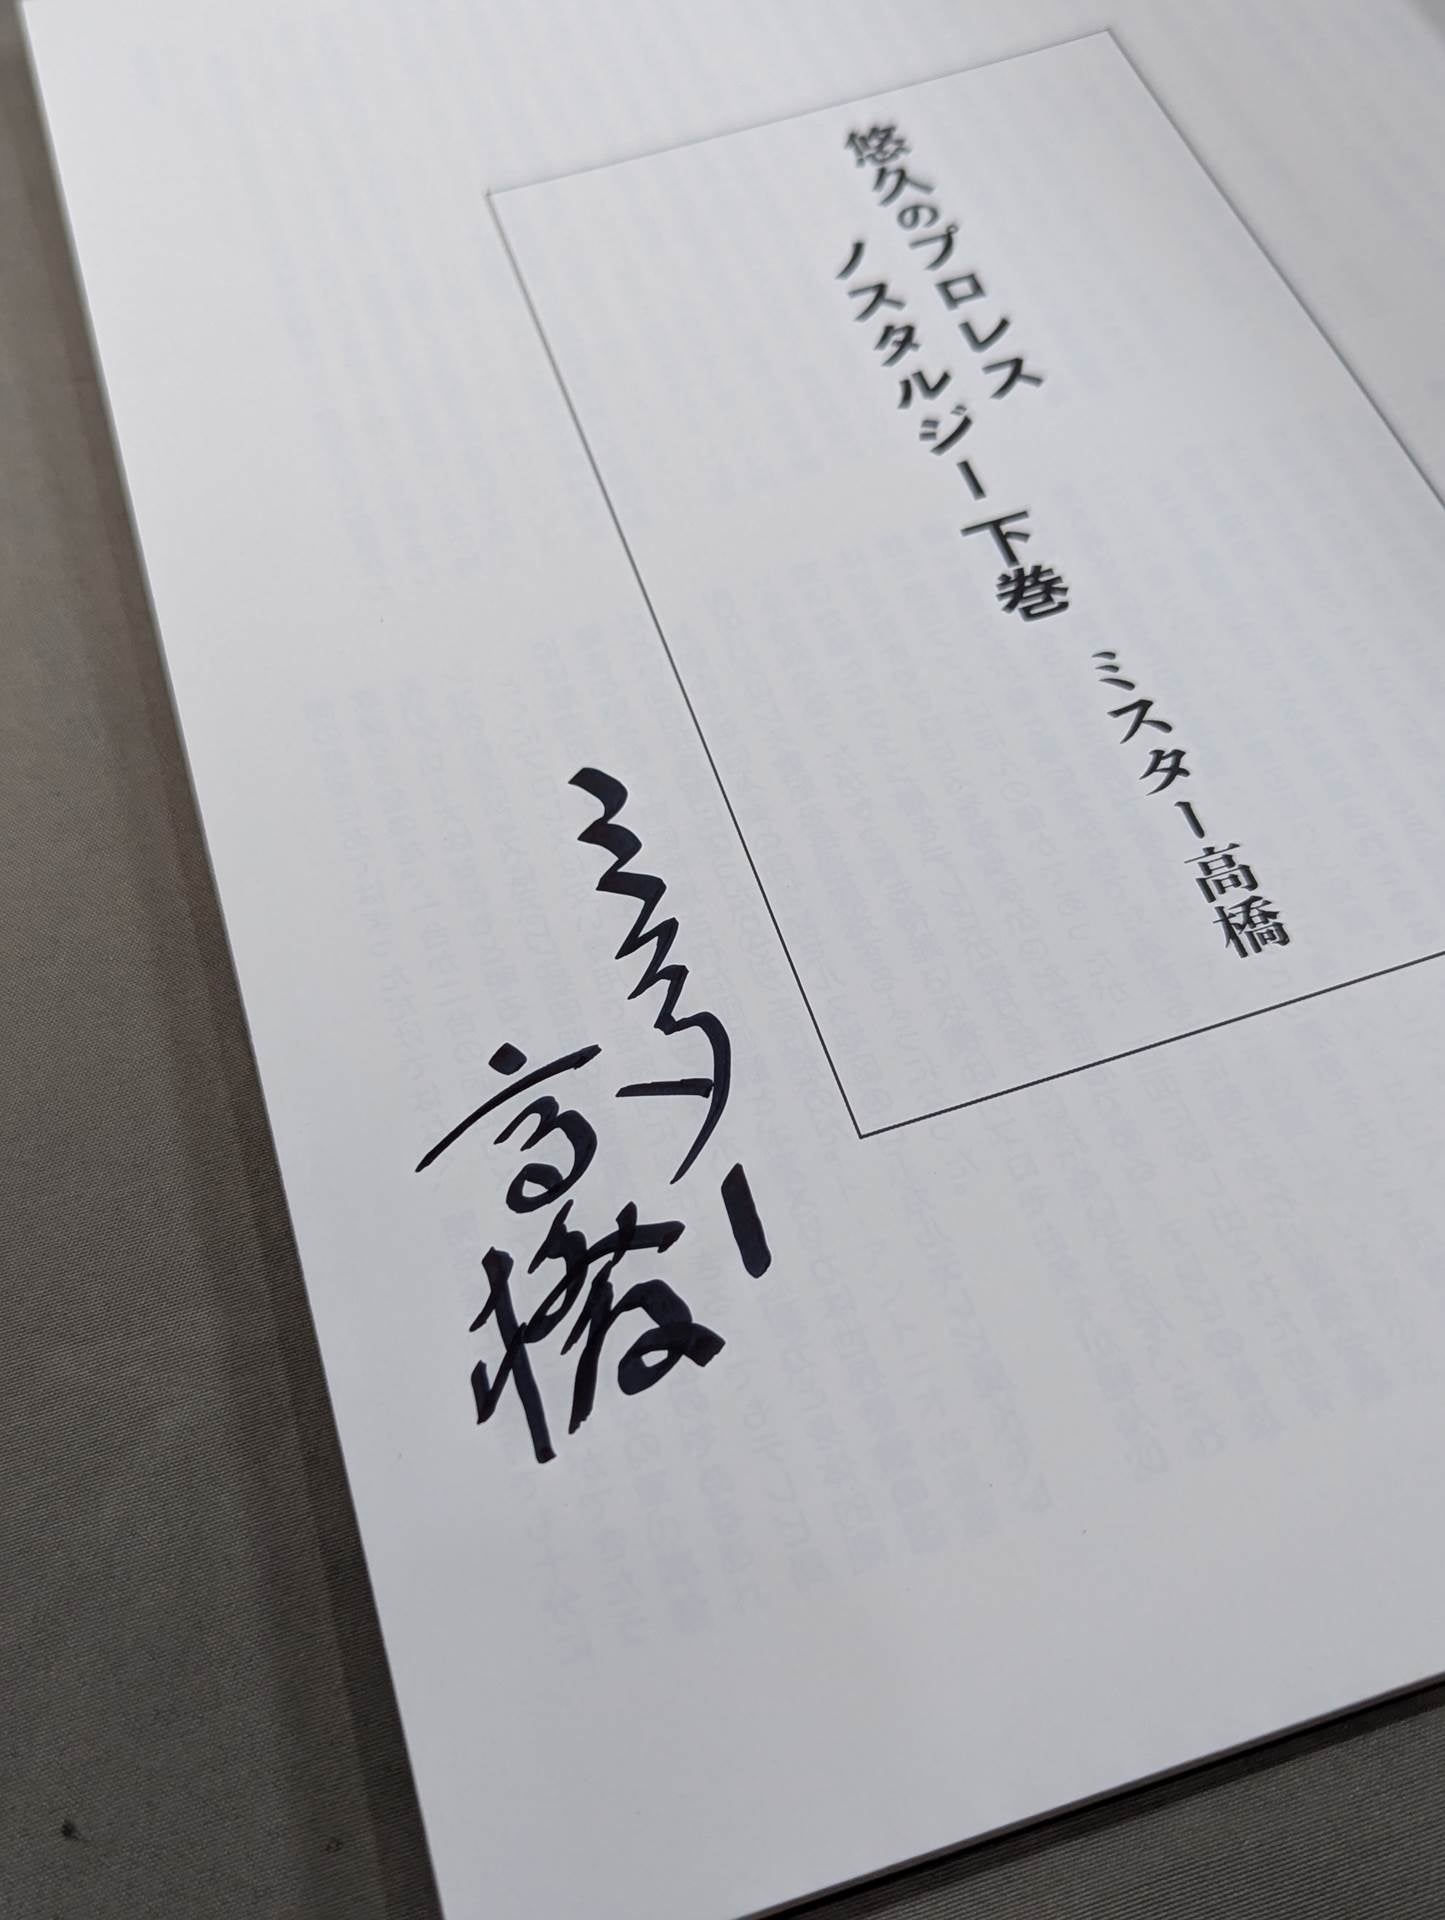 悠久のプロレス
ノスタルジー 下巻
ミスター高橋
ミスター
高橋